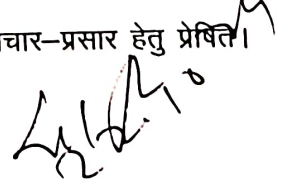 चार–प्रसार हेतु प्रेषित।